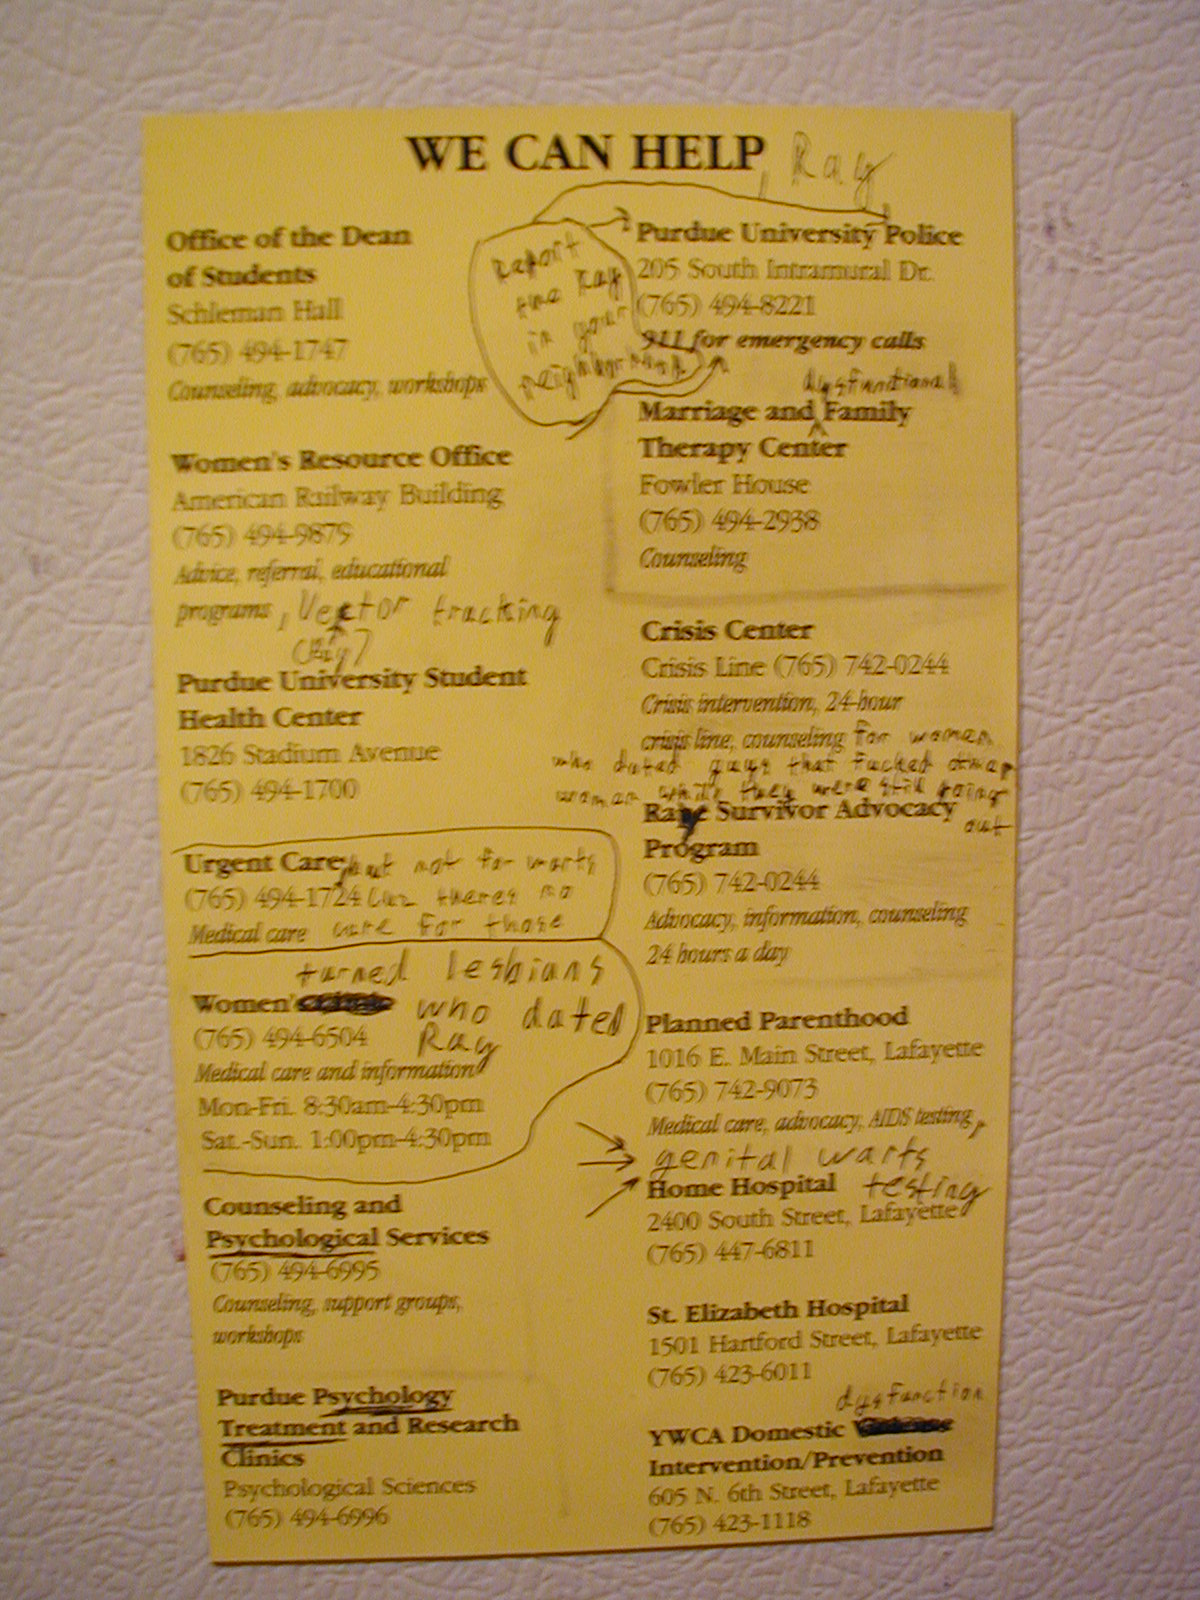 WE CAN HELP, Ray
Office of the Dean
of Students
Schleman Hall
(765) 494-1747
Counseling, advocacy, workshops
Women's Resource Office
American Railway Building
(765) 494-9879
Advice, referral, educational
programs, Vector tracking
Purdue University Student
Health Center
1826 Stadium Avenue
(765) 494-1700
Urgent Care, but not for warts
(765) 494-1724 cuz theres no
Medical care cure for those
turned lesbians
Women' who dated
(765) 494-6504 Ray
Medical care and information
Mon-Fri. 8:30am-4:30pm
Sat.-Sun. 1:00pm-4:30pm
Counseling and
Psychological Services
(765) 494-6995
Counseling, support groups,
workshops
Purdue Psychology
Treatment and Research
Clinics
Psychological Sciences
(765) 494-6996
Report
the Ray
in your
neighborhood
Purdue University Police
205 South Intramural Dr.
(765) 494-8221
911 for emergency calls
dysfunctional
Marriage and Family
Therapy Center
Fowler House
(765) 494-2938
Counseling
Crisis Center
Crisis Line (765) 742-0244
Crisis intervention, 24-hour
crisis line, counseling for women
who dated guys that fucked other
woman while they were still going
out
Raye Survivor Advocacy
Program
(765) 742-0244
Advocacy, information, counseling
24 hours a day
Planned Parenthood
1016 E. Main Street, Lafayette
(765) 742-9073
Medical care, advocacy, AIDS testing,
genital warts
testing
Home Hospital
2400 South Street, Lafayette
(765) 447-6811
St. Elizabeth Hospital
1501 Hartford Street, Lafayette
(765) 423-6011
dysfunction
YWCA Domestic
Intervention/Prevention
605 N. 6th Street, Lafayette
(765) 423-1118